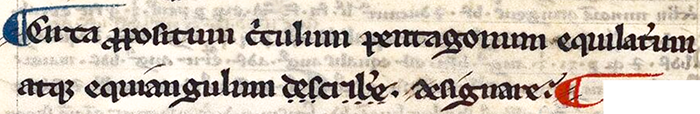 ¶ Circa ꝓpositum c̃culum pentagonum equilat̃um
atqꝫ equiangulum describ̃e. designare. ¶